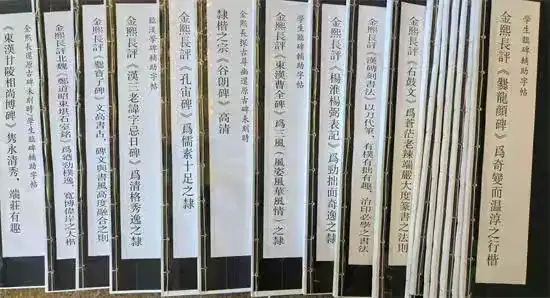 學生臨碑輔助字帖
金熙長評《爨龍顏碑》爲奇變而溫淳之行楷
金熙長評《石鼓文》爲蒼茫老辣端嚴大度篆書之法則
金熙長評《漢磚刻書法》以刀代筆，有樸有拙有趣，治印必學之書法
金熙長評《楊淮楊弼表記》爲勁拙而奇逸之隸
學生臨碑輔助字帖
金熙長評《東漢曹全碑》爲三風（風姿風華風情）之隸
金熙長探古尋幽還原古碑未刻時
隸楷之宗《谷朗碑》高清
金熙長評《孔宙碑》爲儒素十足之隸
臨漢筆碑輔助字帖
金熙長評《漢三老諱字忌日碑》爲清格秀逸之隸
金熙長評《爨寶子碑》文高書古，碑文與書風高度融合之則
金熙長評北魏《鄭道昭東堪石室銘》爲遒勁樸逸，寬博偉岸之大楷
金熙長還原古碑未刻時《學生臨碑輔助字帖
《東漢甘陵相尚博碑》雋永清秀，端莊有趣